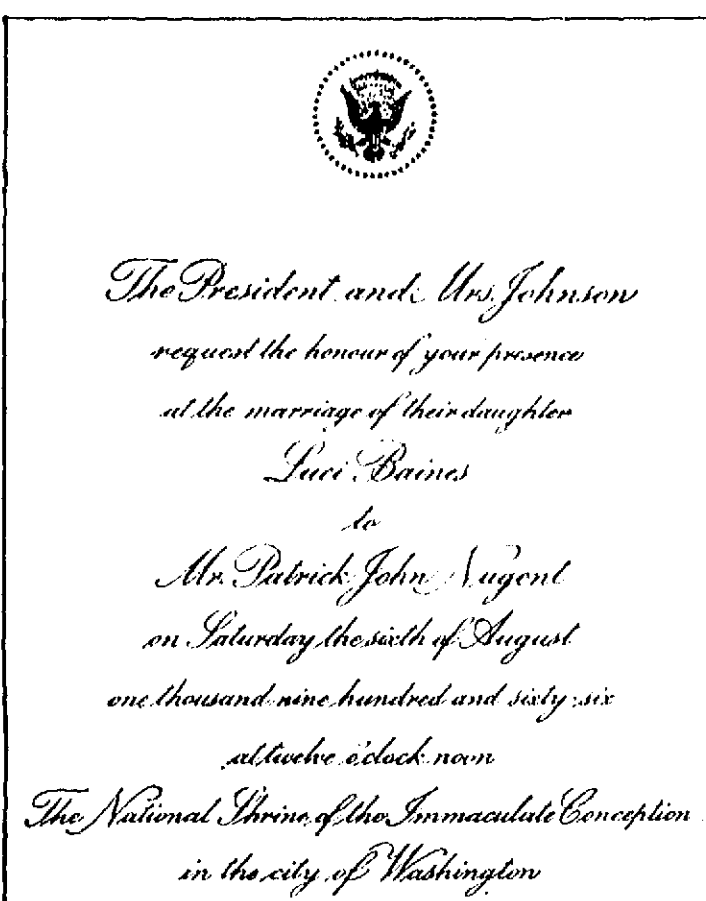 The President and Mrs. Johnson
request the honour of your presence
at the marriage of their daughter
Luci Baines
to
Mr. Patrick John Nugent
on Saturday the sixth of August
one thousand nine hundred and sixty-six
at twelve o'clock noon
The National Shrine of the Immaculate Conception
in the city of Washington